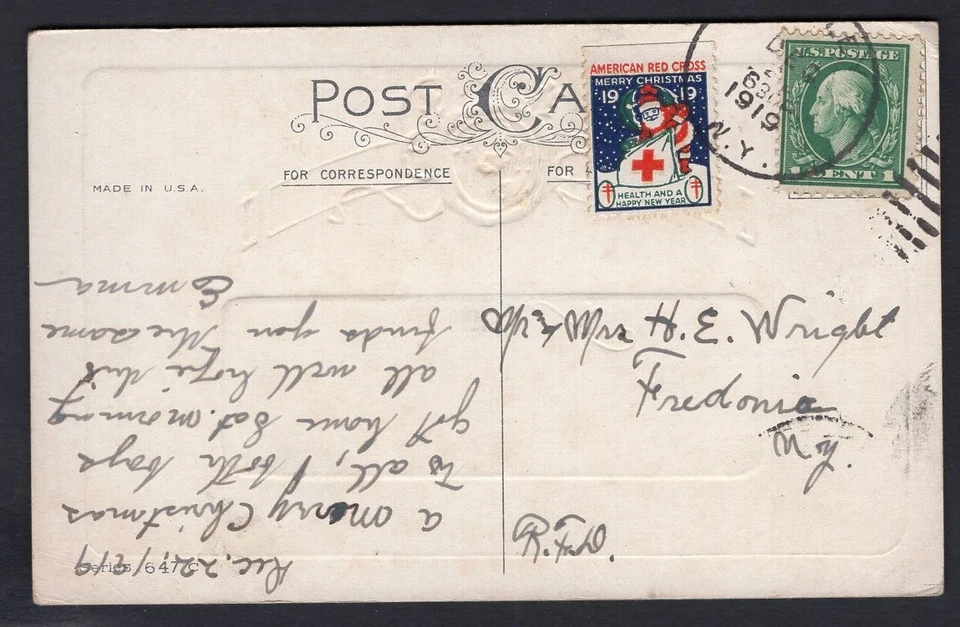 POST CA
AMERICAN RED CROSS
MERRY CHRISTMAS
19 19
HEALTH AND A
HAPPY NEW YEAR
U.S. POSTAGE
CENT 1
D
630
1919
N.Y.
FOR CORRESPONDENCE
FOR
MADE IN U.S.A.
Mr & Mrs H. E. Wright
Fredonia
N.Y.
Dec. 22, 1919
a merry Christmas
to all, both boys
got home Sat. morning
all well hope this
finds you the same
Emma
Series 647 C